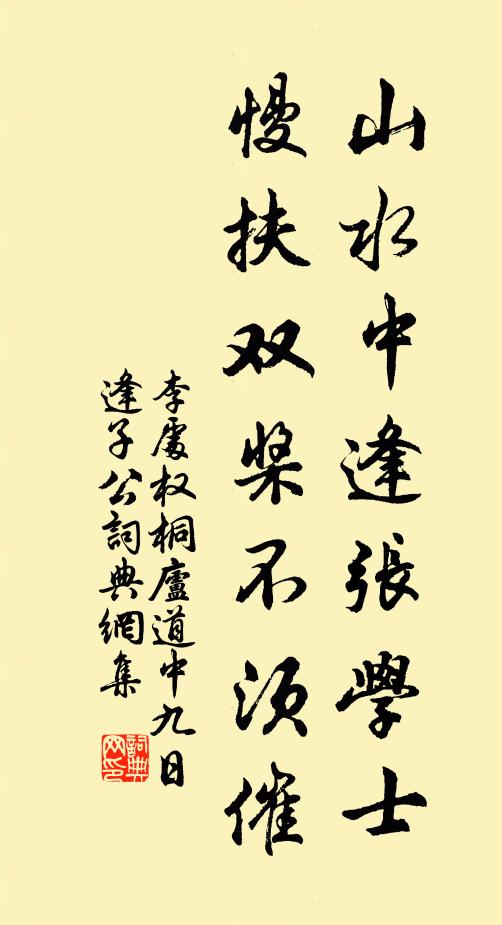 山水中逢張學士
慢扶双槳不須催
李處权桐廬道中九日
逢子公詞典網集
詞典网印